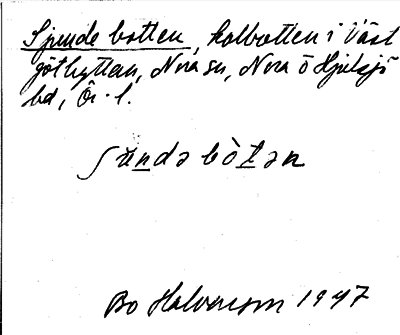 Sjunde botten, kolbotten i Väst
göthyttan, Nora sn, Nora o Hjulsjö
bd, Ör. l.
ʃúndə bòtən
Bo Halvarson 1947